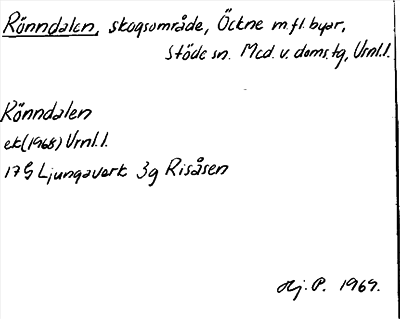 Rönndalen, skogsområde, Öckne m.fl. byar,
Stöde sn. Med. v. doms.tg, Vrnl.l.
Rönndalen
ek(1968) Vrnl.l.
17G Ljungaverk 3g Risåsen
Hj. P. 1969.